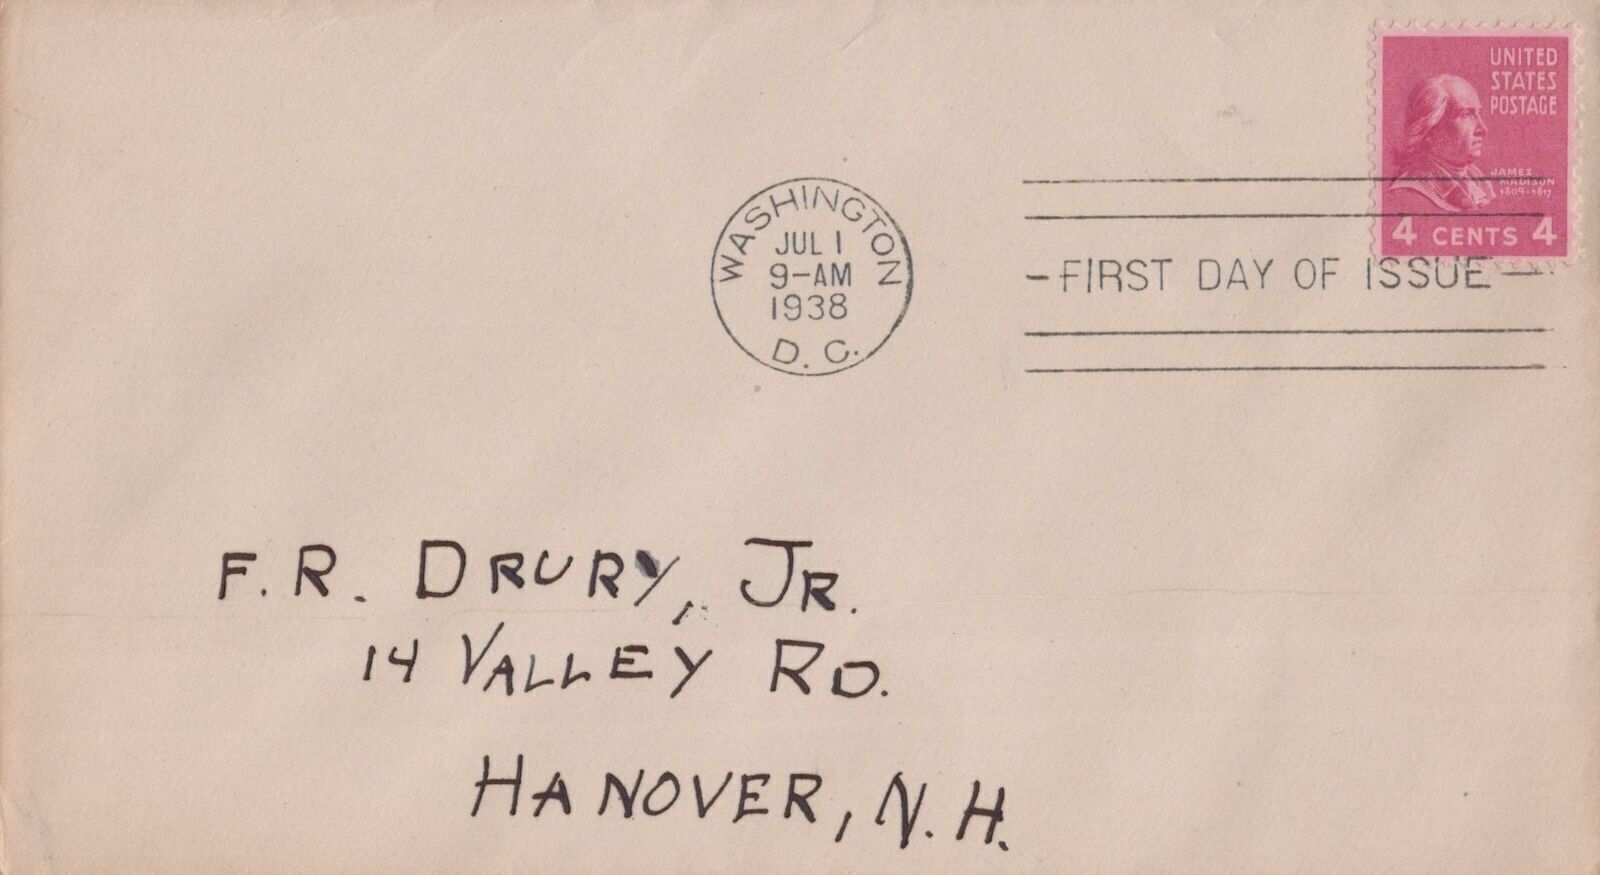 UNITED
STATES
POSTAGE
JAMES
MADISON
1809-1817
4 CENTS 4
WASHINGTON
JUL 1
9-AM
1938
D. C.
-FIRST DAY OF ISSUE-
F. R. DRURY, JR.
14 VALLEY RD.
HANOVER, N. H.